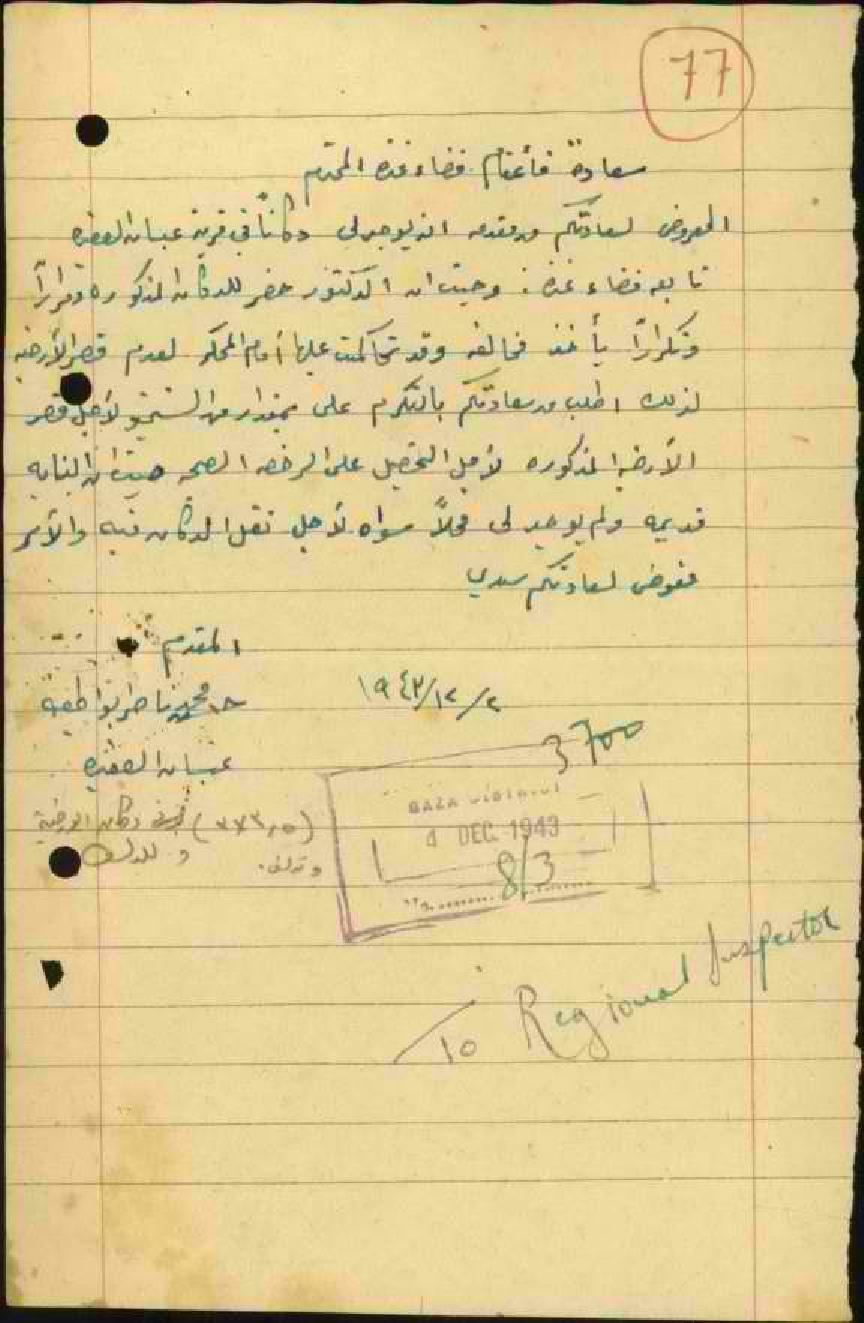 77
سعادة قائمقام قضاء غزه المحترم
المعروض لسعادتكم من مقدمه انه يوجد لي دكاناً في قرية عبسان الصغيره
تابعه قضاء غزه : وحيث ان الدكتور حضر للدكان المذكوره مراراً
وتكراراً يأخذ مخالفه وقد تحاكمت عليها أمام المحكمه لعدم قصر الأرضيه
لذلك اطلب من سعادتكم بالتكرم على بمقدار من الشمنتو لأجل قصر
الأرضيه المذكوره لأجل التحصيل على الرخصه الصحيه حيث ان البنايه
قديمه ولم يوجد لى محلاً سواه لأجل نقل الدكان فيه والأمر
مفوض لسعادتكم سيدي
المقدم
محمد ناصر ابو طعيمه
١٩٤٣/١٢/٢
عبسان الصغيره
3700
GAZA DISTRICT
4 DEC 1943
8/3
No.
دكان
To Regional Inspector